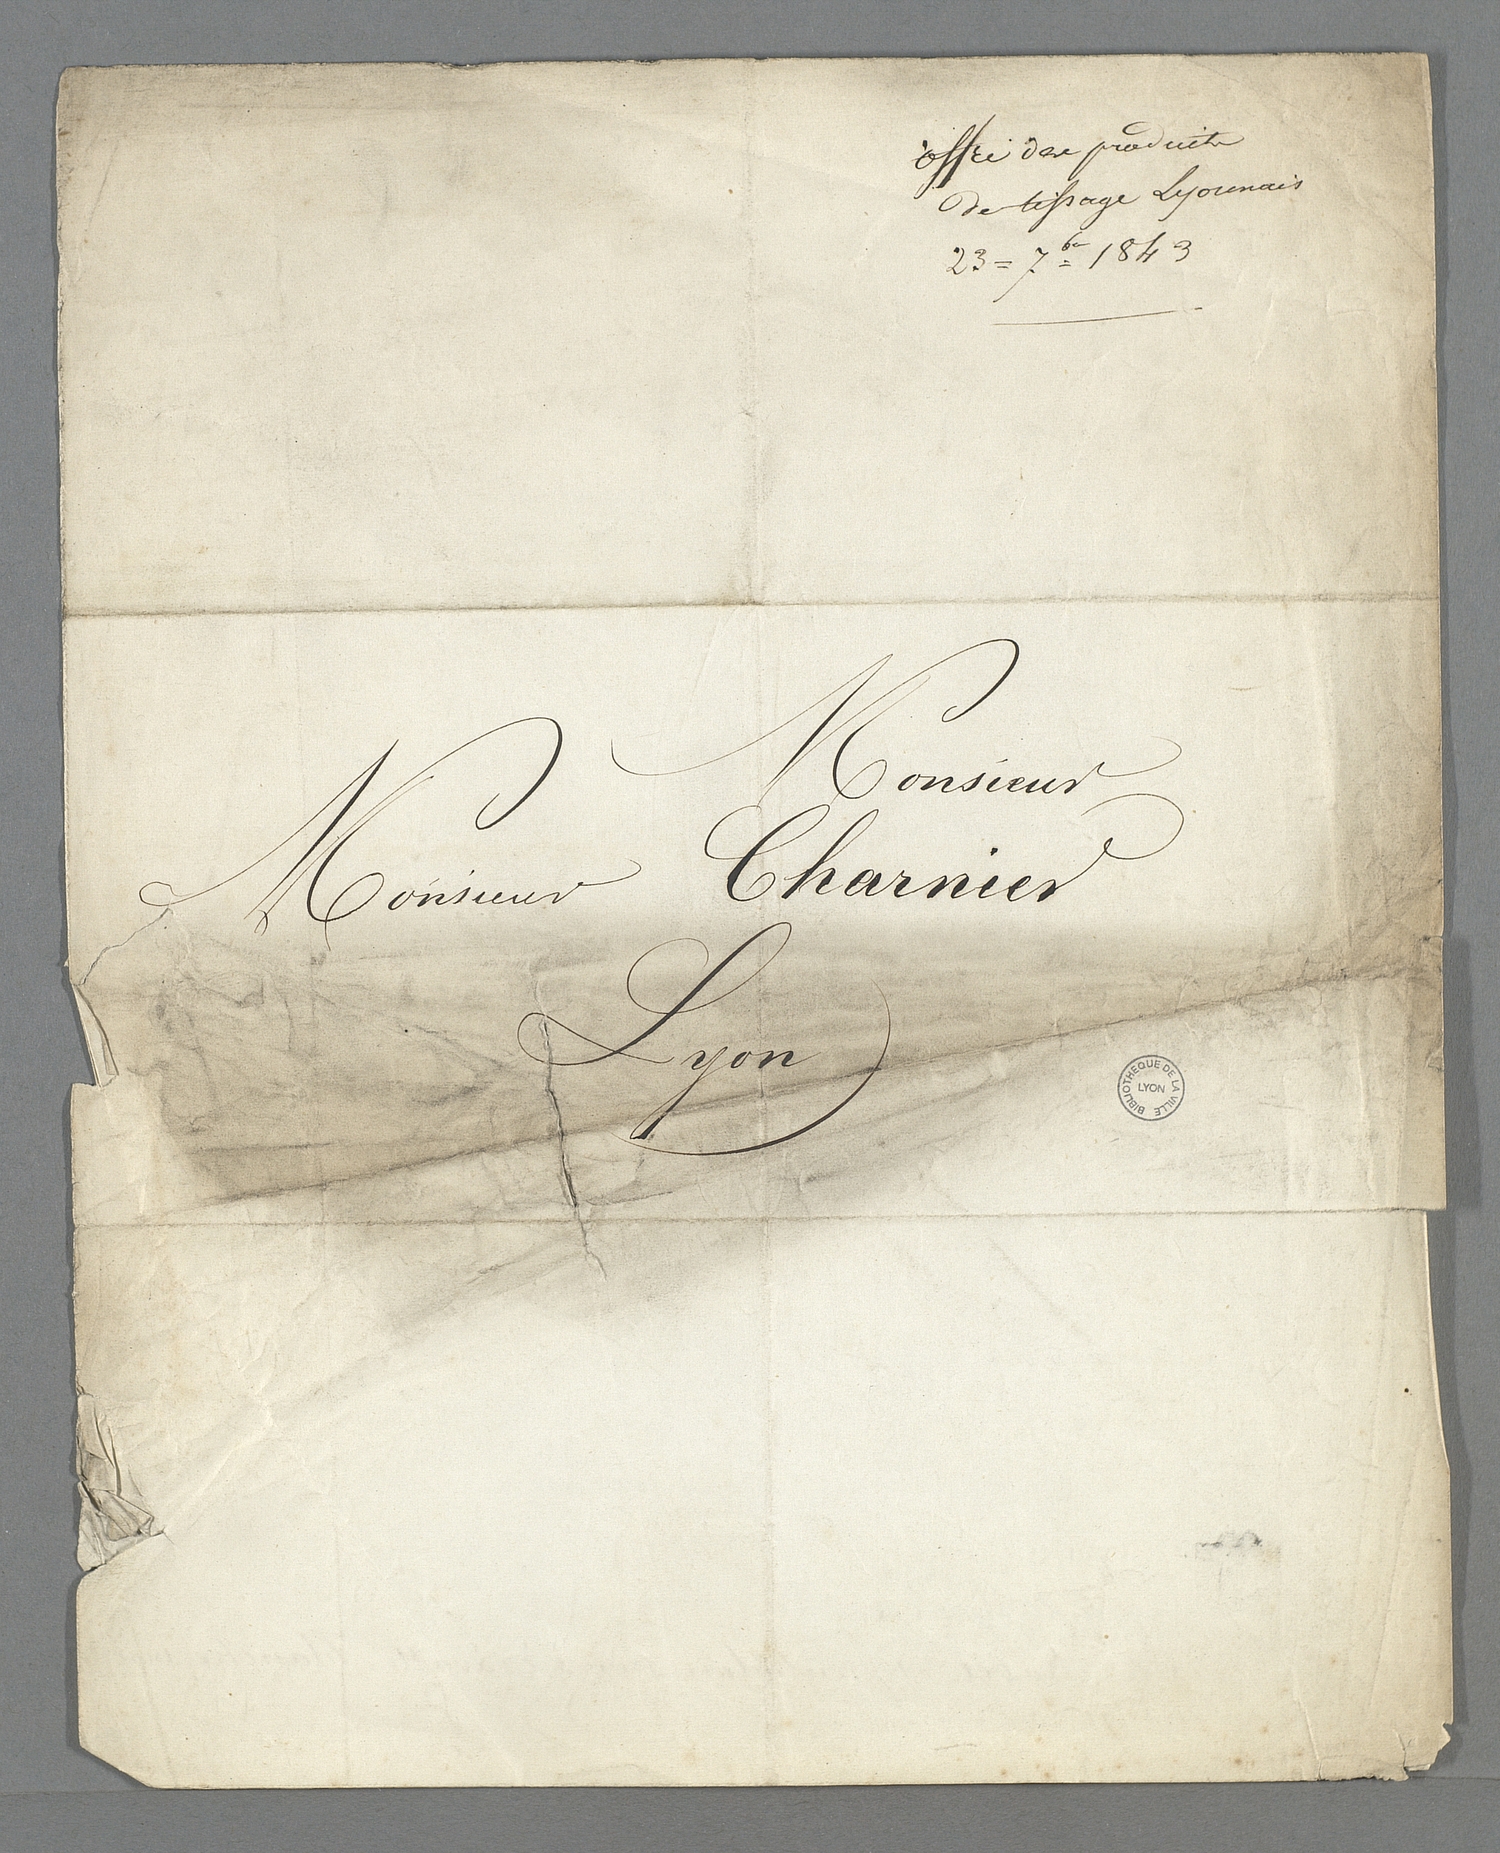 offre des produits
de tissage Lyonnais
23 = 7bre 1843
Monsieur
Monsieur
Charnier
Lyon
BIBLIOTHEQUE DE LA VILLE
LYON